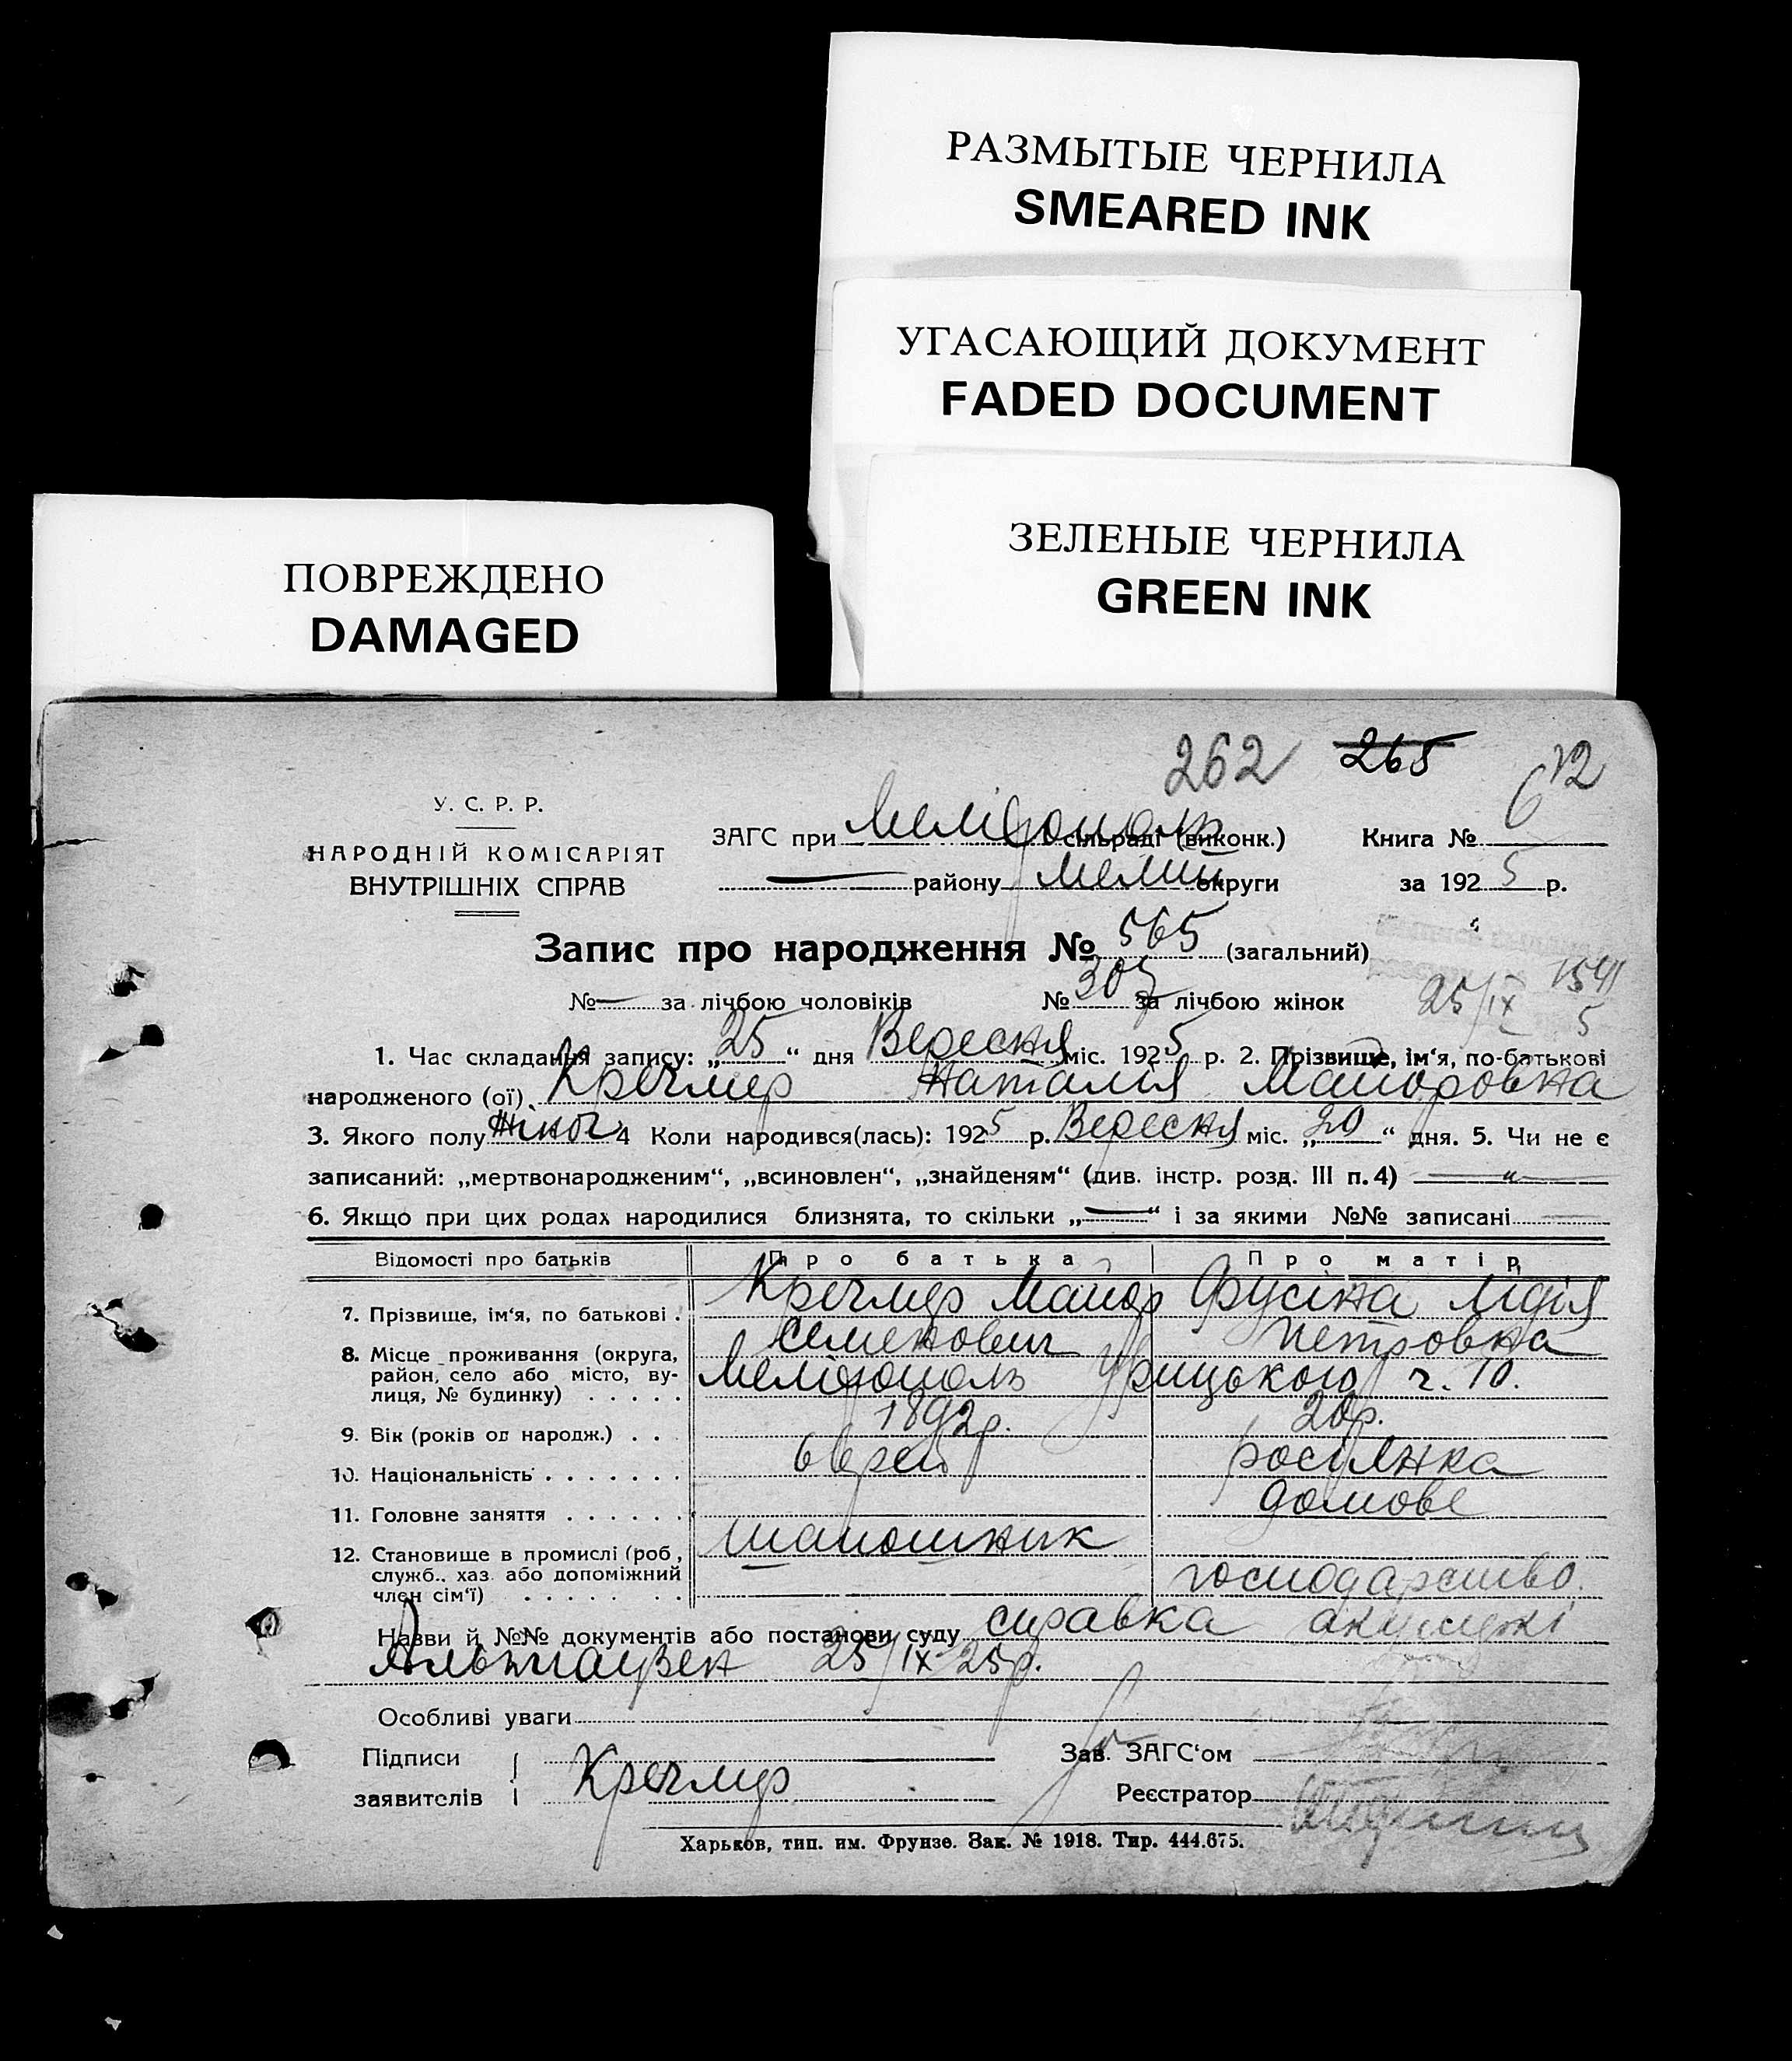 РАЗМЫТЫЕ ЧЕРНИЛА
SMEARED INK
УГАСАЮЩИЙ ДОКУМЕНТ
FADED DOCUMENT
ЗЕЛЕНЫЕ ЧЕРНИЛА
GREEN INK
ПОВРЕЖДЕНО
DAMAGED
262 265 612
У. С. Р. Р.
НАРОДНІЙ КОМІСАРІЯТ
ВНУТРІШНІХ СПРАВ
ЗАГС при Мелітополь сільраді (виконк.) Книга №
— району Мелит округи за 1925 р.
Запис про народження № 565 (загальний)
№ — за лічбою чоловіків № 307 за лічбою жінок 25/IX 5
1. Час складання запису: „25“ дня Вересня міс. 1925 р. 2. Прізвище, ім‘я, по-батькові
народженого (ої) Кречмер Наталія Майоровна
3. Якого полу жіноч 4 Коли народився(лась): 1925 р. Вересня міс. „20“ дня. 5. Чи не є
записаний: „мертвонародженим“, „всиновлен“, „знайденям“ (див. інстр. розд. III п. 4) — „ —
6. Якщо при цих родах народилися близнята, то скільки „—“ і за якими №№ записані —
Відомості про батьків Про батька Про матір
7. Прізвище, ім‘я, по батькові . Кречмер Майор Фрусіна Лідія
Семенович Петровна
8. Місце проживання (округа,
район, село або місто, ву-
лиця, № будинку) . . . . . Мелітополь Урицького ч. 10.
9. Вік (років од народж.) . . . 1892р. 20р.
10. Національність . . . . . . . єврей росіянка
11. Головне заняття . . . . . . домове
шапошник
12. Становище в промислі (роб.,
служб., хаз. або допоміжний
член сім‘ї) . . . . . . . . — господарство.
Назви й №№ документів або постанови суду справка акушеркі
Альтгаузен 25/IX 25р.
Особливі уваги
Підписи
заявителів Кречмер
Зав. ЗАГС‘ом
Реєстратор
Харьков, тип. им. Фрунзе. Зак. № 1918. Тир. 444.675.